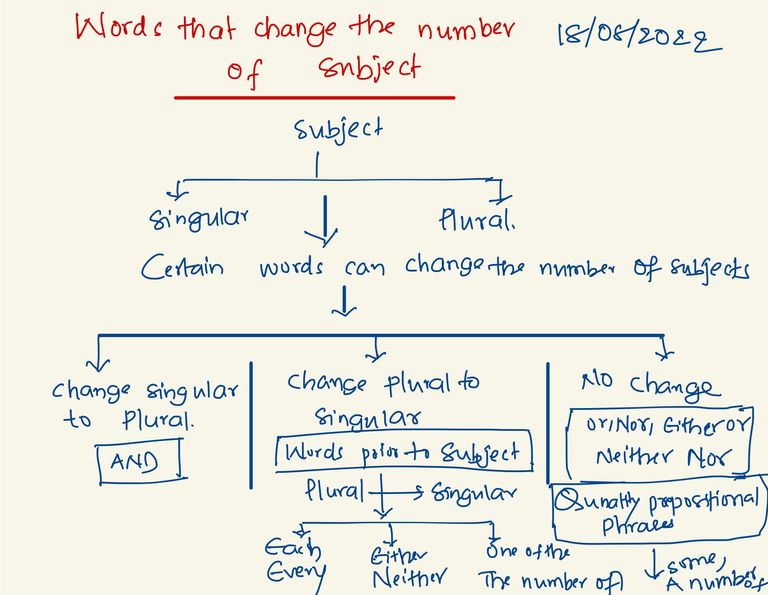 Words that change the number
18/08/2022
of Subject
Subject
Singular
Plural.
Certain words can change the number of subjects
Change singular
to Plural.
AND
Change plural to
singular
Words prior to Subject
Plural → Singular
Each
Every
Either
Neither
One of the
The number of
No change
or, Nor, Either or
Neither Nor
Phrases
some,
A number of